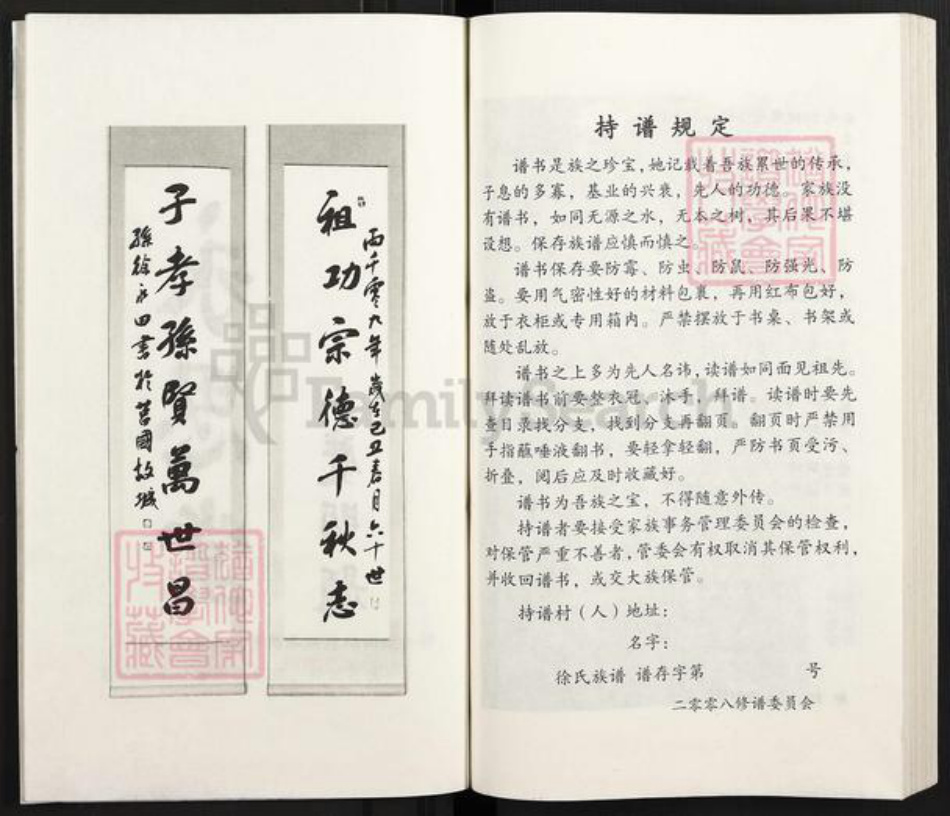 祖功宗德千秋志
两千零九年歲在己丑春月六十世
子孝孫賢萬世昌
孫徐永田書於莒國故城
持谱规定
谱书是族之珍宝,她记载着吾族累世的传承,
子息的多寡，基业的兴衰，先人的功德。家族没
有谱书，如同无源之水，无本之树，其后果不堪
设想。保存族谱应慎而慎之。
谱书保存要防霉、防虫、防鼠、防强光、防
盗。要用气密性好的材料包裹，再用红布包好，
放于衣柜或专用箱内。严禁摆放于书桌、书架或
随处乱放。
谱书之上多为先人名讳,读谱如同面见祖先。
拜读谱书前要整衣冠、沐手、拜谱。读谱时要先
查目录找分支，找到分支再翻页。翻页时严禁用
手指蘸唾液翻书，要轻拿轻翻，严防书页受污、
折叠，阅后应及时收藏好。
谱书为吾族之宝，不得随意外传。
持谱者要接受家族事务管理委员会的检查，
对保管严重不善者，管委会有权取消其保管权利，
并收回谱书，或交大族保管。
持谱村（人）地址：
名字：
徐氏族谱 谱存字第 号
二零零八修谱委员会
FamilySearch